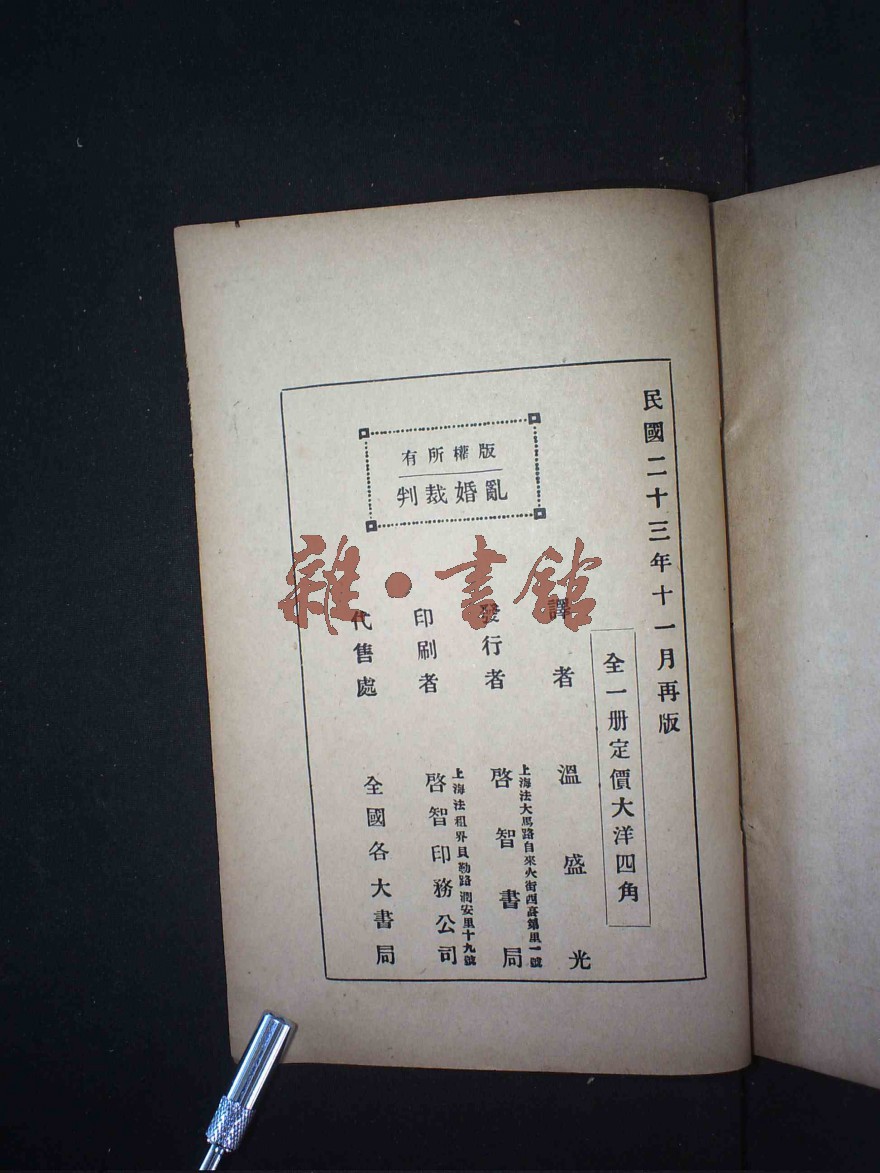 民國二十三年十一月再版
全一册定價大洋四角
譯者 溫盛光
發行者 上海法大馬路自來火街西高第里一號
啓智書局
印刷者 上海法租界貝勒路潤安里十九號
啓智印務公司
代售處 全國各大書局
版權所有
亂婚裁判
雜·書館